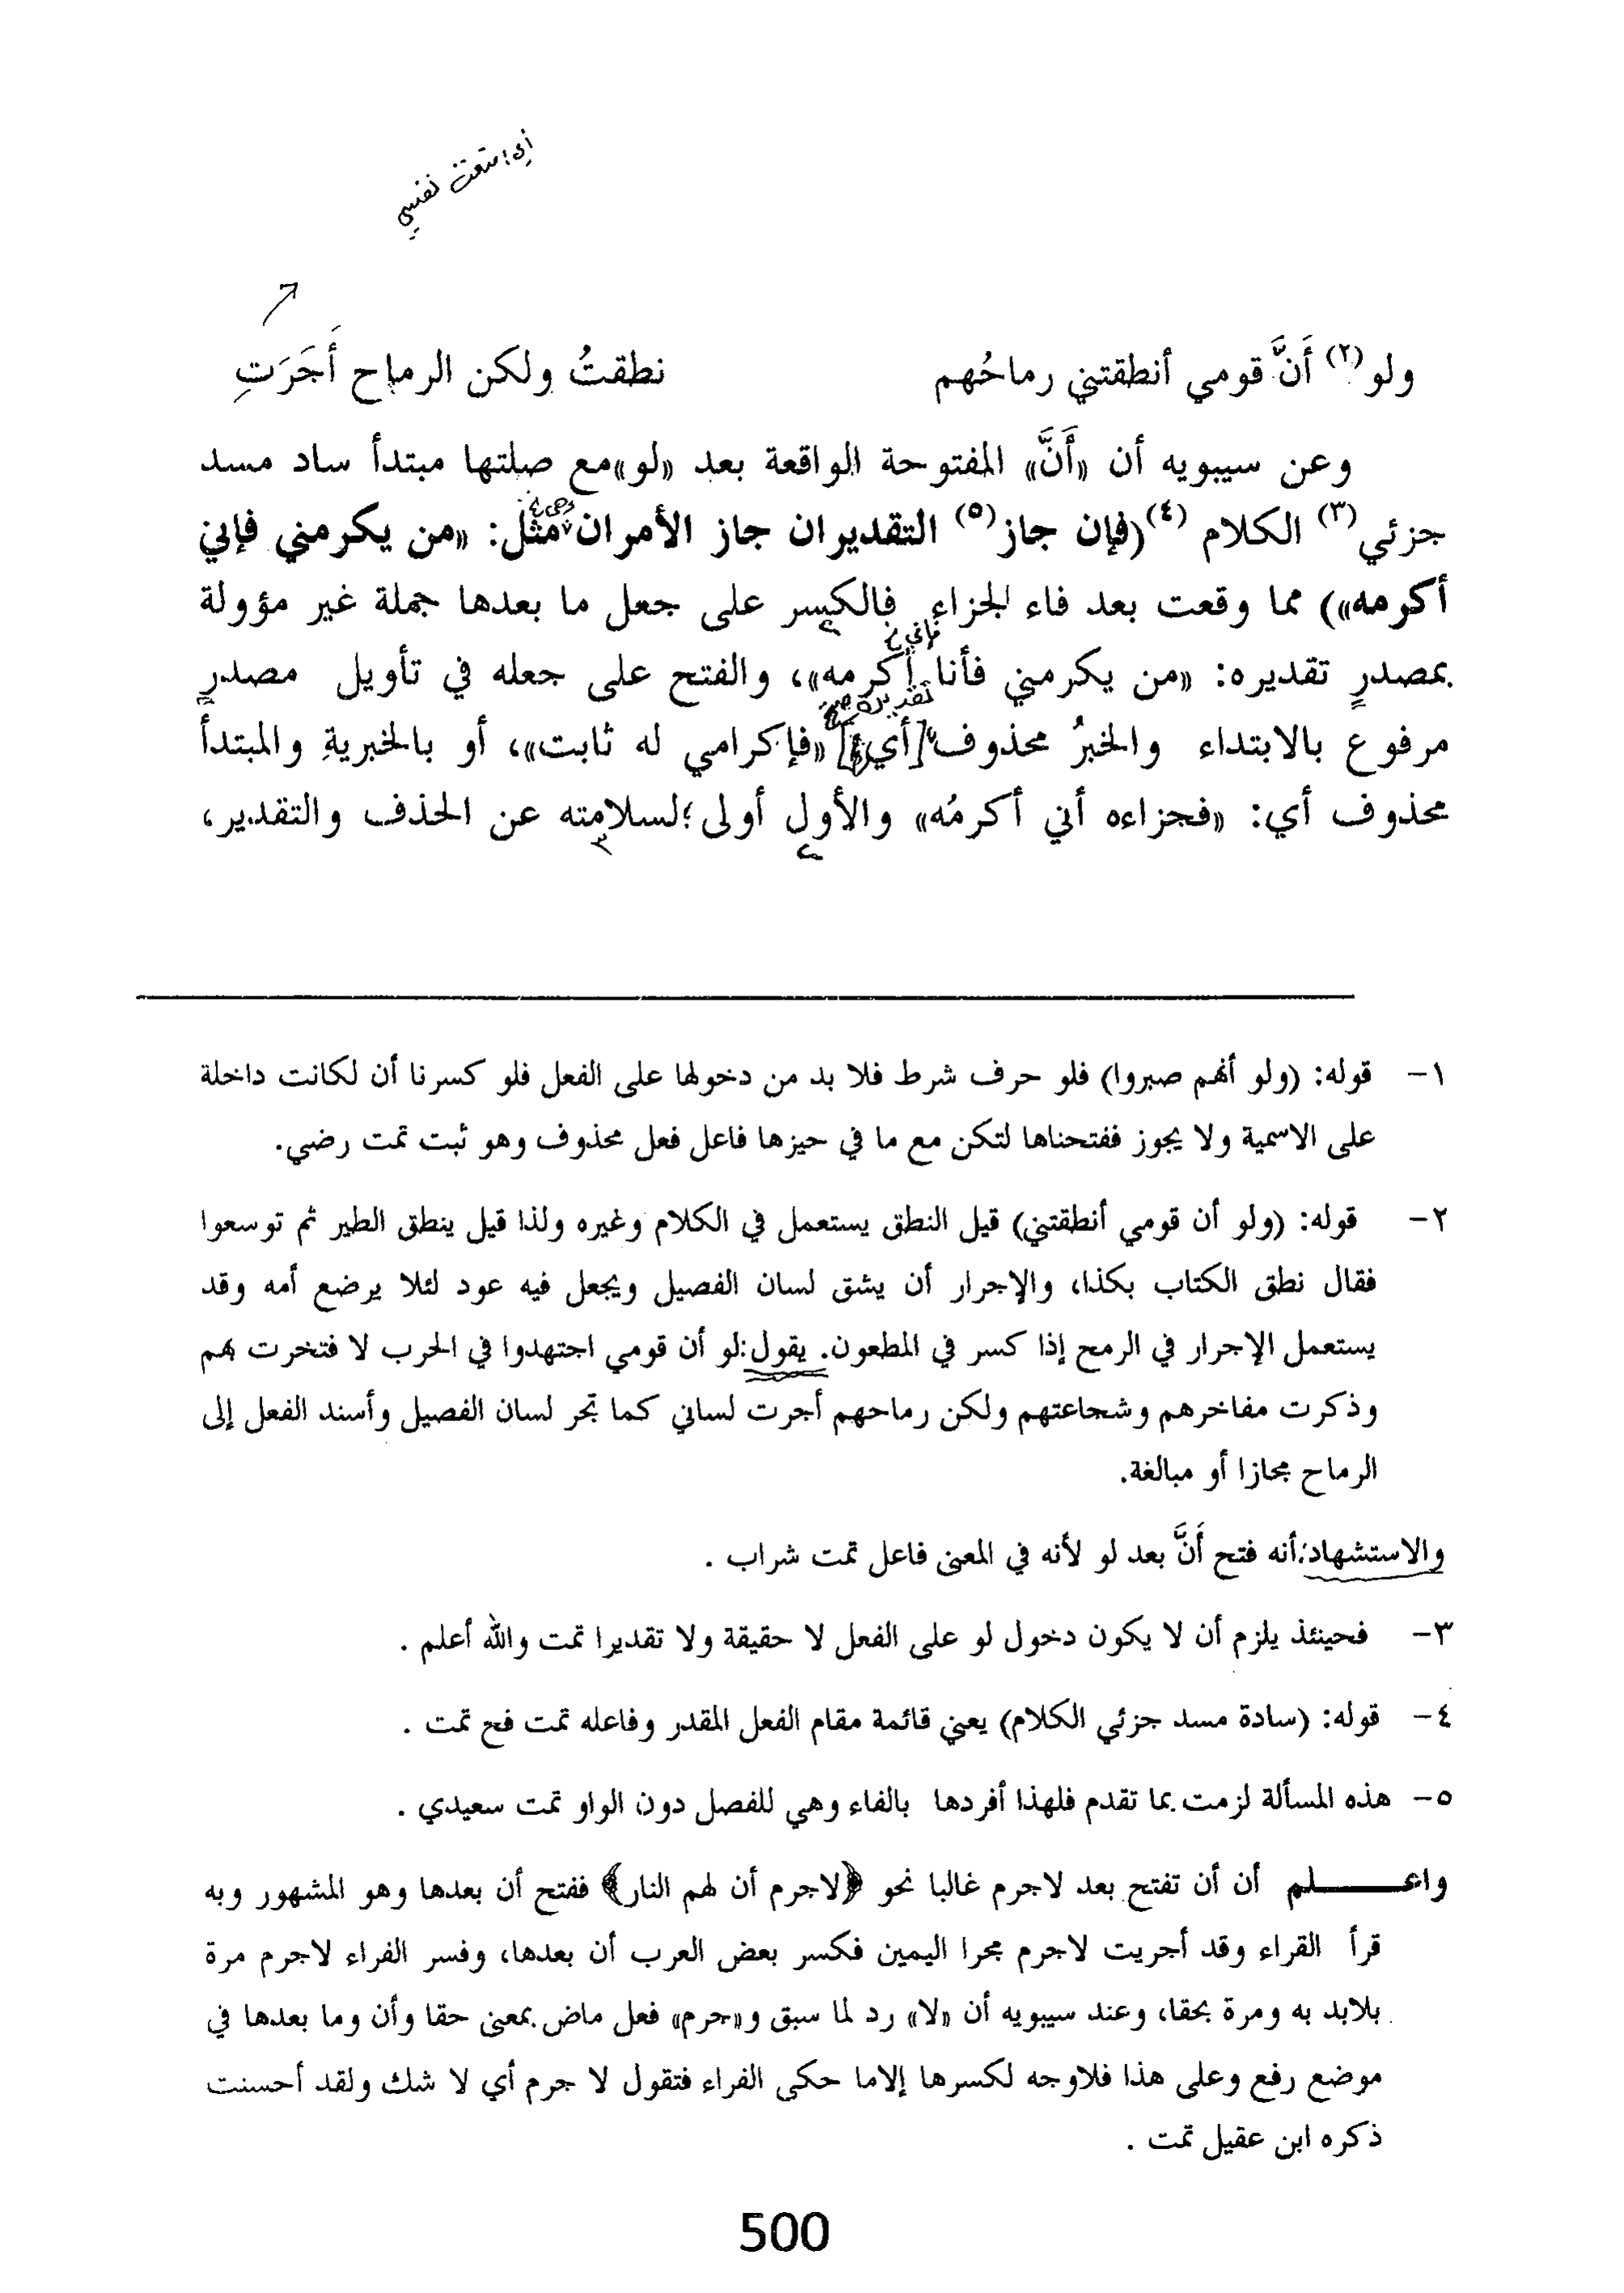 ولو(٢) أَنَّ قومي أنطقتني رماحُهم نطقتُ ولكن الرماح أَجَرَتِ
وعن سيبويه أن «أَنَّ» المفتوحة الواقعة بعد «لو» مع صلتها مبتدأ ساد مسد
جزئي(٣) الكلام (٤)(فإن جاز(٥) التقديران جاز الأمران مثل: «من يكرمني فإني
أكرمه») مما وقعت بعد فاء الجزاء فالكسر على جعل ما بعدها جملة غير مؤولة
بمصدرٍ تقديره: «من يكرمني فأنا أكرمه»، والفتح على جعله في تأويل مصدرٍ
مرفوع بالابتداء والخبرُ محذوف [أي] «فإكرامي له ثابت»، أو بالخبريةِ والمبتدأ
محذوف أي: «فجزاءه أني أكرمُه» والأول أولى؛ لسلامته عن الحذف والتقدير،
١- قوله: (ولو أنهم صبروا) فلو حرف شرط فلا بد من دخولها على الفعل فلو كسرنا أن لكانت داخلة
على الاسمية ولا يجوز ففتحناها لتكن مع ما في حيزها فاعل فعل محذوف وهو ثبت تمت رضي.
٢- قوله: (ولو أن قومي أنطقتني) قيل النطق يستعمل في الكلام وغيره ولذا قيل ينطق الطير ثم توسعوا
فقال نطق الكتاب بكذا، والإجرار أن يشق لسان الفصيل ويجعل فيه عود لئلا يرضع أمه وقد
يستعمل الإجرار في الرمح إذا كسر في المطعون. يقول: لو أن قومي اجتهدوا في الحرب لا فتخرت بهم
وذكرت مفاخرهم وشجاعتهم ولكن رماحهم أجرت لساني كما تجر لسان الفصيل وأسند الفعل إلى
الرماح مجازا أو مبالغة.
والاستشهاد: أنه فتح أَنَّ بعد لو لأنه في المعنى فاعل تمت شراب .
٣- فحينئذ يلزم أن لا يكون دخول لو على الفعل لا حقيقة ولا تقديرا تمت والله أعلم .
٤- قوله: (سادة مسد جزئي الكلام) يعني قائمة مقام الفعل المقدر وفاعله تمت فح تمت .
٥- هذه المسألة لزمت بما تقدم فلهذا أفردها بالفاء وهي للفصل دون الواو تمت سعيدي .
واعـــــلم أن أن تفتح بعد لاجرم غالبا نحو ﴿لاجرم أن لهم النار﴾ ففتح أن بعدها وهو المشهور وبه
قرأ القراء وقد أجريت لاجرم مجرا اليمين فكسر بعض العرب أن بعدها، وفسر الفراء لاجرم مرة
بلابد به ومرة بحقا، وعند سيبويه أن «لا» رد لما سبق و«جرم» فعل ماض بمعنى حقا وأن وما بعدها في
موضع رفع وعلى هذا فلاوجه لكسرها إلاما حكى الفراء فتقول لا جرم أي لا شك ولقد أحسنت
ذكره ابن عقيل تمت .
500